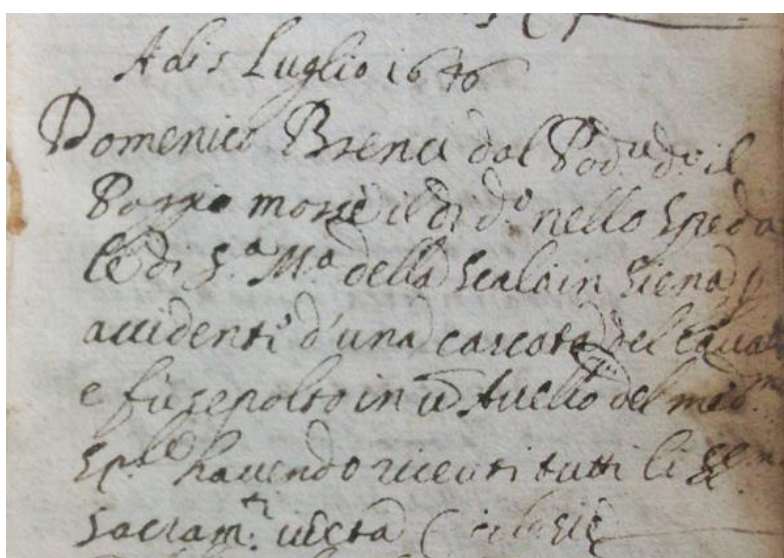 Adi 5 Luglio 1646
Domenico Brenci dal Pod.e d.o il
Poggio morse il dì d.o nello Speda
le di S.a M.a della Scala in Siena p
accidenti d'una cascata del cava
e fu sepolto in Avello del med.mo
Sp.le havendo riceuti tutti li SS.mi
Sacram.ti